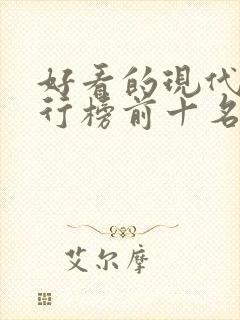 好看的现代
行榜前十名
艾尔摩